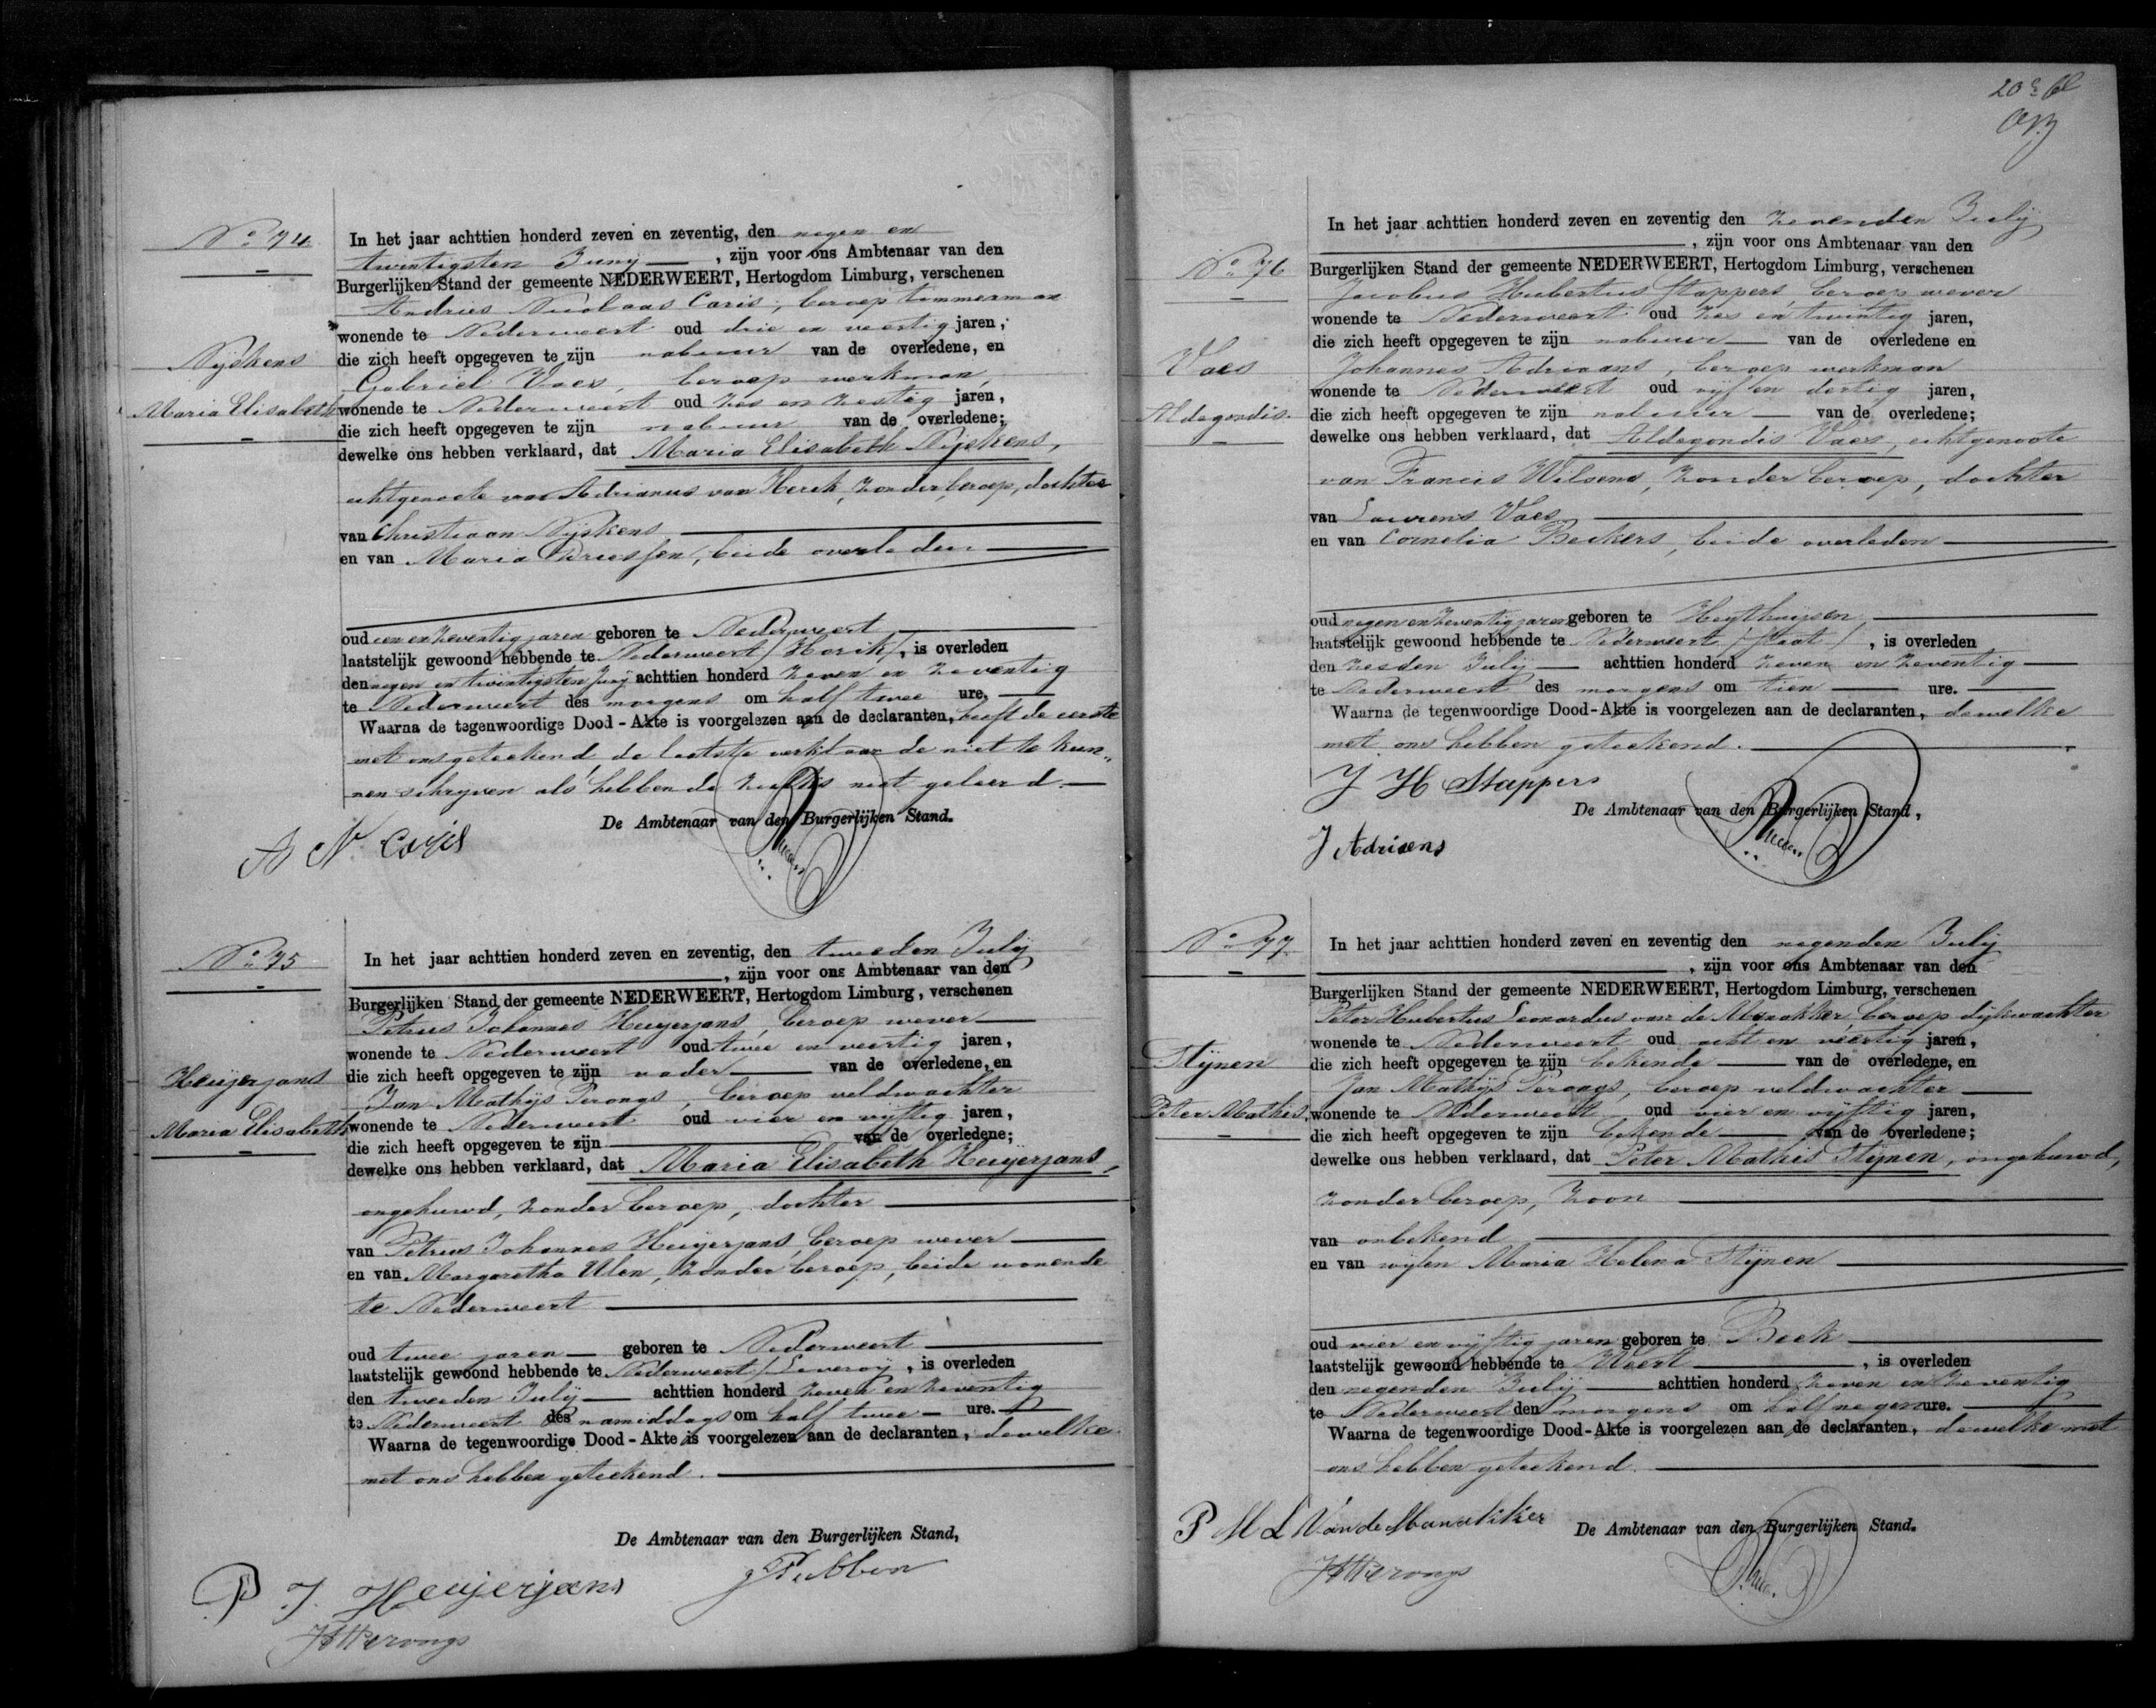 N.o 74.
Nijskens
Maria Elisabeth
In het jaar achttien honderd zeven en zeventig, den negen en
twintigsten Juny, zijn voor ons Ambtenaar van den
Burgerlijken Stand der gemeente NEDERWEERT, Hertogdom Limburg, verschenen
Andries Nicolaas Caris, beroep timmerman
wonende te Nederweert oud drie en veertig jaren,
die zich heeft opgegeven te zijn nabuur van de overledene, en
Gabriël Vaes, beroep werkman,
wonende te Nederweert oud zes en zestig jaren,
die zich heeft opgegeven te zijn nabuur van de overledene;
dewelke ons hebben verklaard, dat Maria Elisabeth Nijskens,
echtgenoote van Adrianus van Herck, zonder beroep, dochter
van Christiaan Nijskens
en van Maria Driessen, beide overleden
oud een en zeventig jaren geboren te Nederweert
laatstelijk gewoond hebbende te Nederweert / Horik /, is overleden
den negen en twintigsten Juny achttien honderd zeven en zeventig
te Nederweert des morgens om half twee ure,
Waarna de tegenwoordige Dood-Akte is voorgelezen aan de declaranten, heeft de eerste
met ons geteekend, de laatste verklaarde niet te kun-
nen schryven als hebbende zulks niet geleerd.
De Ambtenaar van den Burgerlijken Stand.
A N Caris
N.o 75
Heijerjans
Maria Elisabeth
In het jaar achttien honderd zeven en zeventig, den tweeden July
, zijn voor ons Ambtenaar van den
Burgerlijken Stand der gemeente NEDERWEERT, Hertogdom Limburg, verschenen
Petrus Johannes Heuyerjans, beroep wever
wonende te Nederweert oud twee en veertig jaren,
die zich heeft opgegeven te zijn vader van de overledene, en
Jan Mathijs Perongs, beroep veldwachter
wonende te Nederweert oud vier en vyftig jaren,
die zich heeft opgegeven te zijn van de overledene;
dewelke ons hebben verklaard, dat Maria Elisabeth Heuyerjans,
ongehuwd, zonder beroep, dochter
van Petrus Johannes Heuyerjans, beroep wever
en van Margaretha Ulen, zonder beroep, beide wonende
te Nederweert
oud twee jaren geboren te Nederweert
laatstelijk gewoond hebbende te Nederweert / Leveroy, is overleden
den tweeden July achttien honderd zeven en zeventig
te Nederweert des namiddags om half twee ure.
Waarna de tegenwoordige Dood-Akte is voorgelezen aan de declaranten, dewelke
met ons hebben geteekend.
De Ambtenaar van den Burgerlijken Stand,
P J. Heuijerjans
JMPerongs
20e bl
N.o 76
Vaes
Aldegondis.
In het jaar achttien honderd zeven en zeventig den zevenden July
, zijn voor ons Ambtenaar van den
Burgerlijken Stand der gemeente NEDERWEERT, Hertogdom Limburg, verschenen
Jacobus Hubertus Stappers, beroep wever
wonende te Nederweert oud zes en twintig jaren,
die zich heeft opgegeven te zijn nabuur van de overledene en
Johannes Adriaans, beroep werkman
wonende te Nederweert oud vyf en dertig jaren,
die zich heeft opgegeven te zijn nabuur van de overledene;
dewelke ons hebben verklaard, dat Aldegondis Vaes, echtgenoote
van Francis Wilsens, zonder beroep, dochter
van Laurens Vaes
en van Cornelia Beckers, beide overleden
oud negen en zeventig jaren geboren te Heythuijsen
laatstelijk gewoond hebbende te Nederweert / Staat /, is overleden
den zesden July achttien honderd zeven en zeventig
te Nederweert des morgens om tien ure.
Waarna de tegenwoordige Dood-Akte is voorgelezen aan de declaranten, dewelke
met ons hebben geteekend.
J H Stappers
De Ambtenaar van den Burgerlijken Stand,
J Adriaens
N.o 77.
Stijnen
Peter Mathis.
In het jaar achttien honderd zeven en zeventig den negenden July
, zijn voor ons Ambtenaar van den
Burgerlijken Stand der gemeente NEDERWEERT, Hertogdom Limburg, verschenen
Peter Hubertus Leonardus van de Manakker, beroep dijkwachter
wonende te Nederweert oud acht en veertig jaren,
die zich heeft opgegeven te zijn bekende van de overledene, en
Jan Mathijs Perongs, beroep veldwachter
wonende te Nederweert oud vier en vyftig jaren,
die zich heeft opgegeven te zijn bekende van de overledene;
dewelke ons hebben verklaard, dat Peter Mathis Stijnen, ongehuwd,
zonder beroep, zoon
van onbekend
en van wylen Maria Helena Stijnen
oud vier en vyftig jaren geboren te Beek
laatstelijk gewoond hebbende te Weert, is overleden
den negenden July achttien honderd zeven en zeventig
te Nederweert den morgens om half negen ure.
Waarna de tegenwoordige Dood-Akte is voorgelezen aan de declaranten, dewelke met
ons hebben geteekend.
P H L Van de Manakker
De Ambtenaar van den Burgerlijken Stand.
JMPerongs